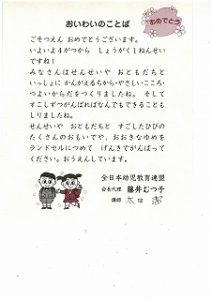 おいわいのことば
おめでとう
ごそつえん おめでとうございます。
いよいよ４がつから しょうがく１ねんせい
ですね！
みなさんはせんせいや おともだちと
いっしょに かんがえるちから・やさしいこころ・
つよいからだをつくりました。 そして
すこしずつがんばればなんでもできることも
しりましたね。
せんせいや おともだちと すごしたひびの
たくさんのおもいでや、おおきなゆめを
ランドセルにつめて げんきでがんばって
ください。おうえんしています。
全日本幼児教育連盟
会長代理 藤井むつ子
講師